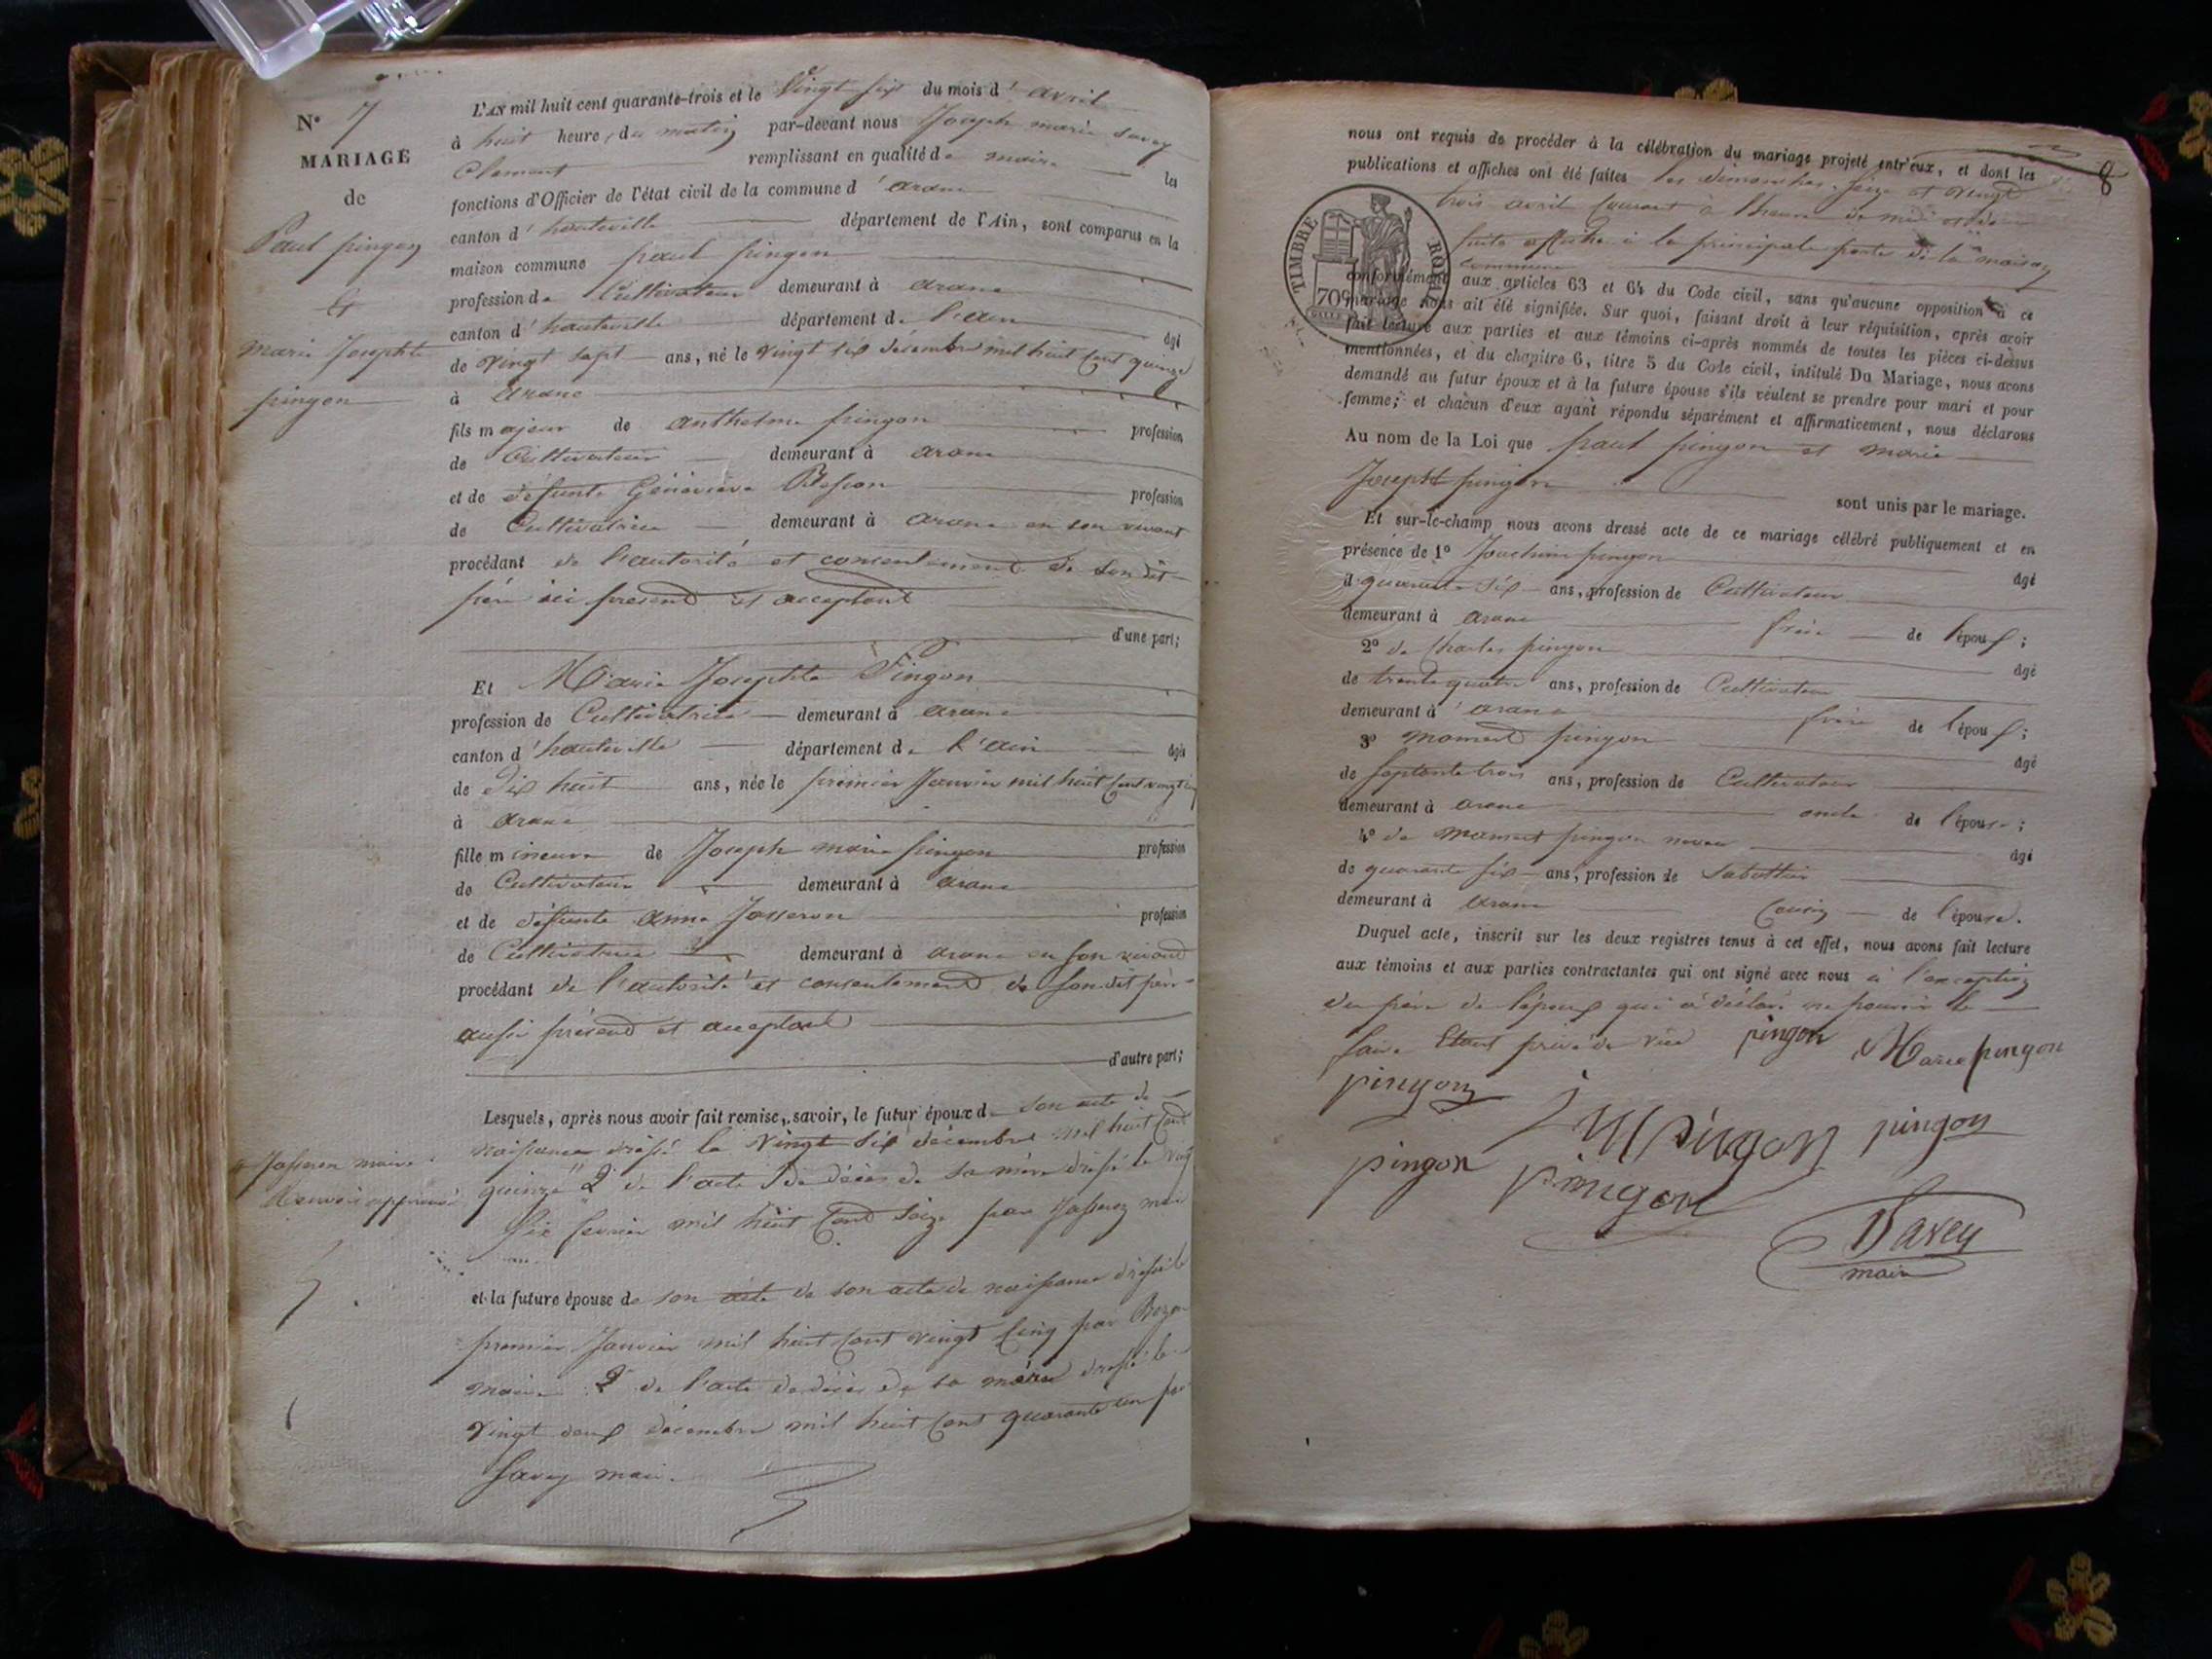 N° 7
MARIAGE
de
Paul pingon
&
marie Josephte
pingon
L'AN mil huit cent quarante-trois et le Vingt six du mois d'avril
à huit heure, du matin par-devant nous Joseph marie Savey
Clement remplissant en qualité de maire les
fonctions d'Officier de l'état civil de la commune d'aranc
canton d'hauteville département de l'Ain, sont comparus en la
maison commune paul pingon
profession de Cultivateur demeurant à aranc
canton d'hauteville département de l'ain âgé
de Vingt sept ans, né le vingt six décembre mil huit cent quinze
à aranc
fils majeur de anthelme pingon profession
de Cultivateur demeurant à aranc
et de défunte Géneviève Besson profession
de Cultivatrice demeurant à aranc en son vivant
procédant de l'autorité et consentement de son dit
père ici présend et acceptant
d'une part;
Et Marie Josephte Pingon
profession de Cultivatrice demeurant à aranc
canton d'hauteville département de l'ain âgée
de Dix huit ans, née le premier Janvier mil huit cent vingt cinq
à aranc
fille mineure de Joseph marie pingon profession
de Cultivateur demeurant à aranc
et de défunte anne Josseron profession
de Cultivatrice demeurant à aranc en son vivand
procédant de l'autorité et consentement de son dit père
aussi présend et acceptant
d'autre part;
Lesquels, après nous avoir fait remise, savoir, le futur époux de son acte de
naissance dressé le vingt six décembre mil huit cent
quinze 2° de l'acte de décès de sa mère dressé le vingt
six fevrier mil huit cent seize par Josseron maire
Josseron maire
Renvoi approuvé
et la future épouse de son acte de son acte de naissance dressé le
premier Janvier mil huit cent vingt cinq par
maire 2° de l'acte de décès de sa mère dressé le
vingt deux décembre mil huit cent quarante un par
Savey maire.
8
nous ont requis de procéder à la célébration du mariage projeté entr'eux, et dont les
publications et affiches ont été faites les dimanches seize et vingt
trois avril courant à l'heure de midi et de
suite affiché à la principale porte de la maison
commune
TIMBRE ROYAL
70c
conformément aux articles 63 et 64 du Code civil, sans qu'aucune opposition à ce
mariage nous ait été signifiée. Sur quoi, faisant droit à leur réquisition, après avoir
fait lecture aux parties et aux témoins ci-après nommés de toutes les pièces ci-dessus
mentionnées, et du chapitre 6, titre 5 du Code civil, intitulé Du Mariage, nous avons
demandé au futur époux et à la future épouse s'ils veulent se prendre pour mari et pour
femme; et chacun d'eux ayant répondu séparément et affirmativement, nous déclarons
Au nom de la Loi que paul pingon et marie
Josepht pingon sont unis par le mariage.
Et sur-le-champ nous avons dressé acte de ce mariage célébré publiquement et en
présence de 1° Joachim pingon âgé
de quarante six ans, profession de Cultivateur
demeurant à aranc frère de l'époux;
2° de Charles pingon âgé
de trente quatre ans, profession de Cultivateur
demeurant à aranc frère de l'époux;
3° momend pingon âgé
de septante trois ans, profession de Cultivateur
demeurant à aranc oncle de l'épouse;
4° de momert pingon neveu âgé
de quarante six ans, profession de Sabottier
demeurant à aranc Cousin de l'épouse.
Duquel acte, inscrit sur les deux registres tenus à cet effet, nous avons fait lecture
aux témoins et aux parties contractantes qui ont signé avec nous à l'exception
du père de l'époux qui a déclaré ne pouvoir le
faire Etant privé de vue pingon Marie pingon
pingon
J M pingon pingon
pingon pingon
Savey
maire